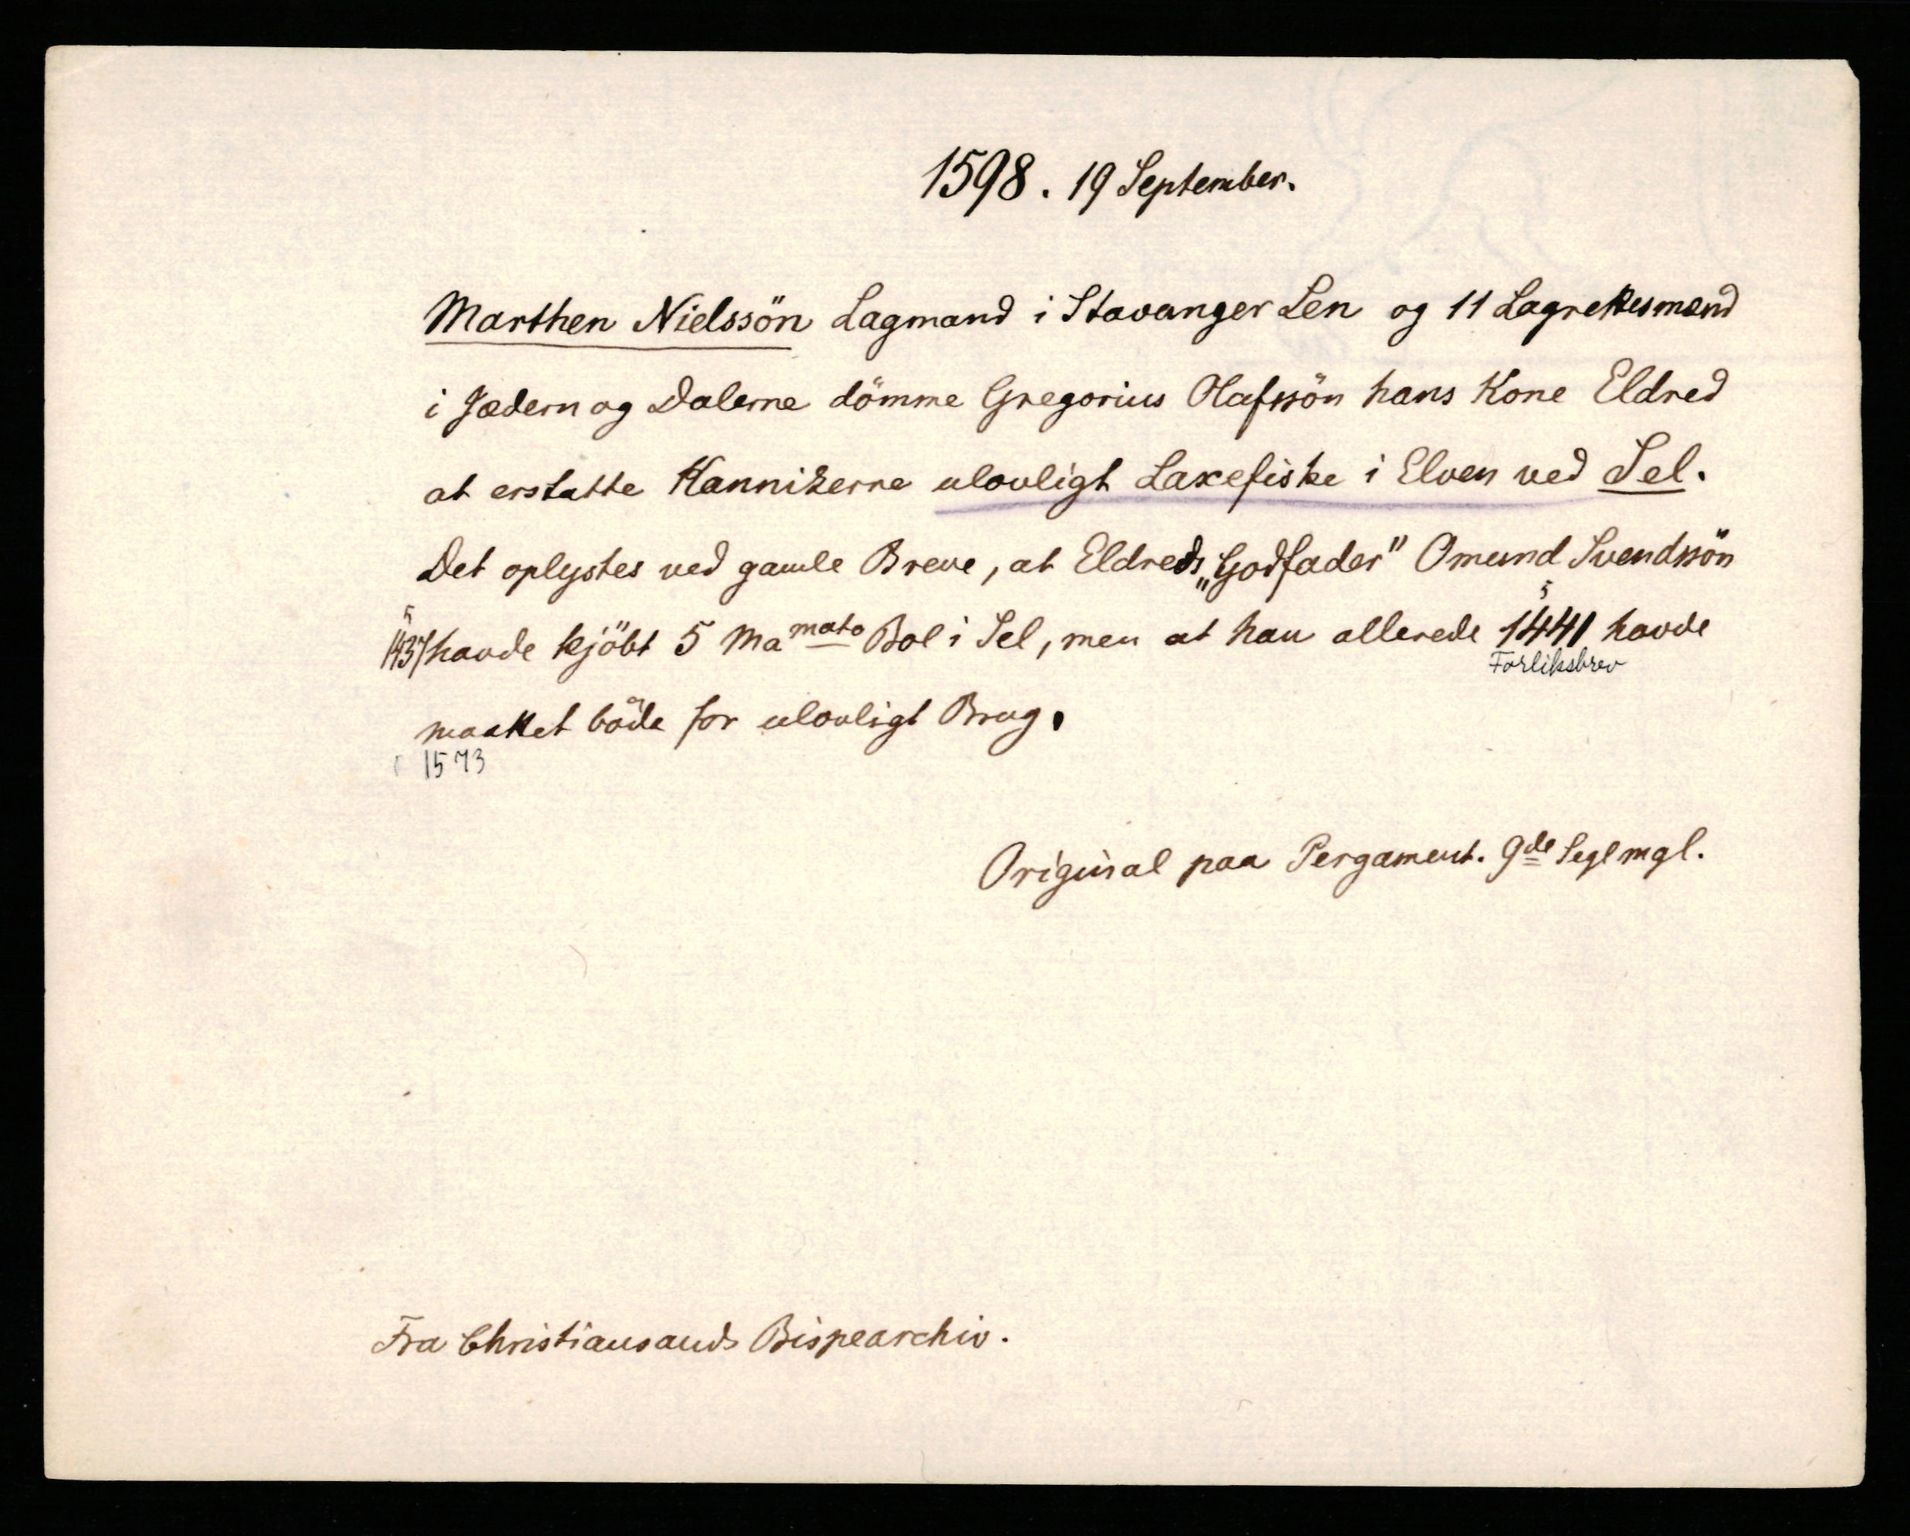 1598. 19 September.
Marthen Nielssön Lagmand i Stavanger Len og 11 Lagrettesmænd
i Jædern og Dalerne dömme Gregorius Olafssön hans Kone Eldred
at erstatte Kannikerne ulovligt Laxefiske i Elven ved Sel.
Det oplystes ved gamle Breve, at Eldreds „Godfader” Omund Svendssön
5 5
1437 havde kjöbt 5 Ma mata Bol i Sel, men at han allerede 1441 havde
Forliksbrev
maattet böde for ulovligt Brug.
1573
Original paa Pergament. 9de Segl mgl.
Fra Christiansands Bispearchiv.